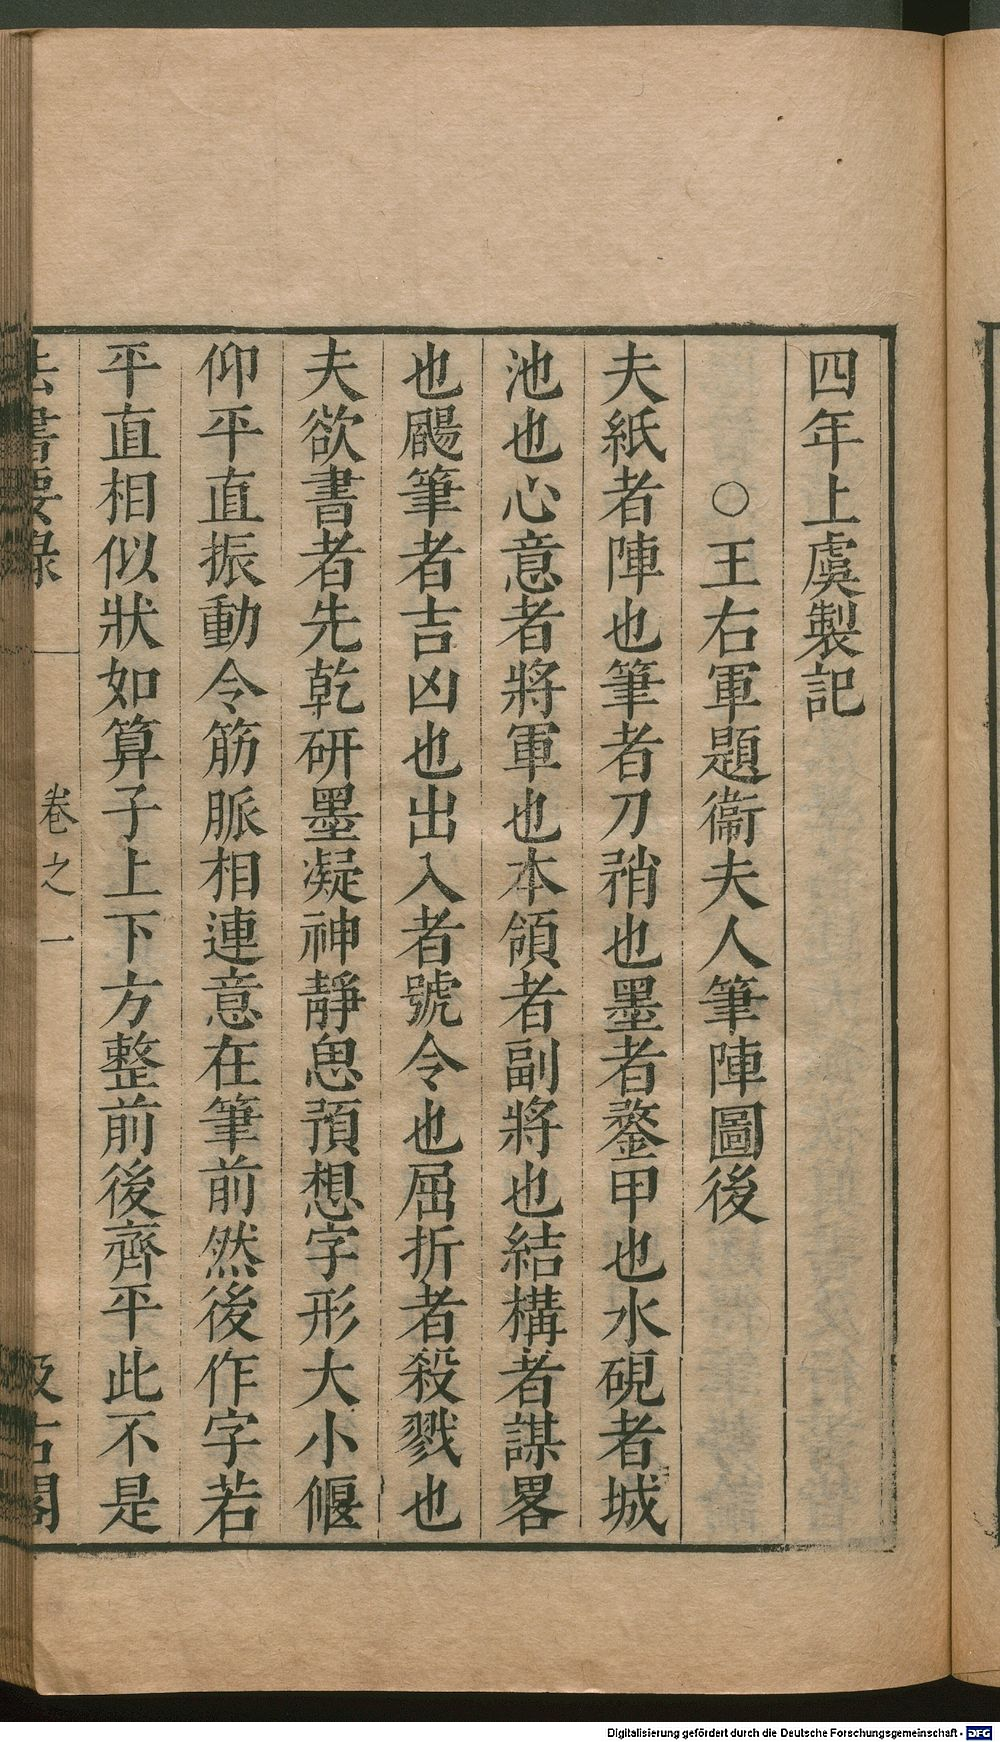 四年上虞製記
○王右軍題衞夫人筆陣圖後
夫紙者陣也筆者刀矟也墨者鍪甲也水硯者城
池也心意者將軍也本領者副將也結構者謀畧
也颺筆者吉凶也出入者號令也屈折者殺戮也
夫欲書者先乾研墨凝神靜思預想字形大小偃
仰平直振動令筋脈相連意在筆前然後作字若
平直相似狀如算子上下方整前後齊平此不是
法書要錄 卷之一 汲古閣
Digitalisierung gefördert durch die Deutsche Forschungsgemeinschaft - DFG